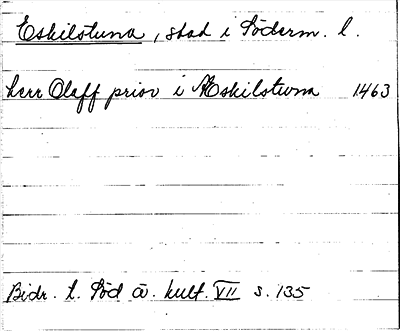 Eskilstuna, stad i Söderm. l.
herr Olaff prior i Æskilstuna 1463
Bidr. t. Söd ä. kult. VII s. 135